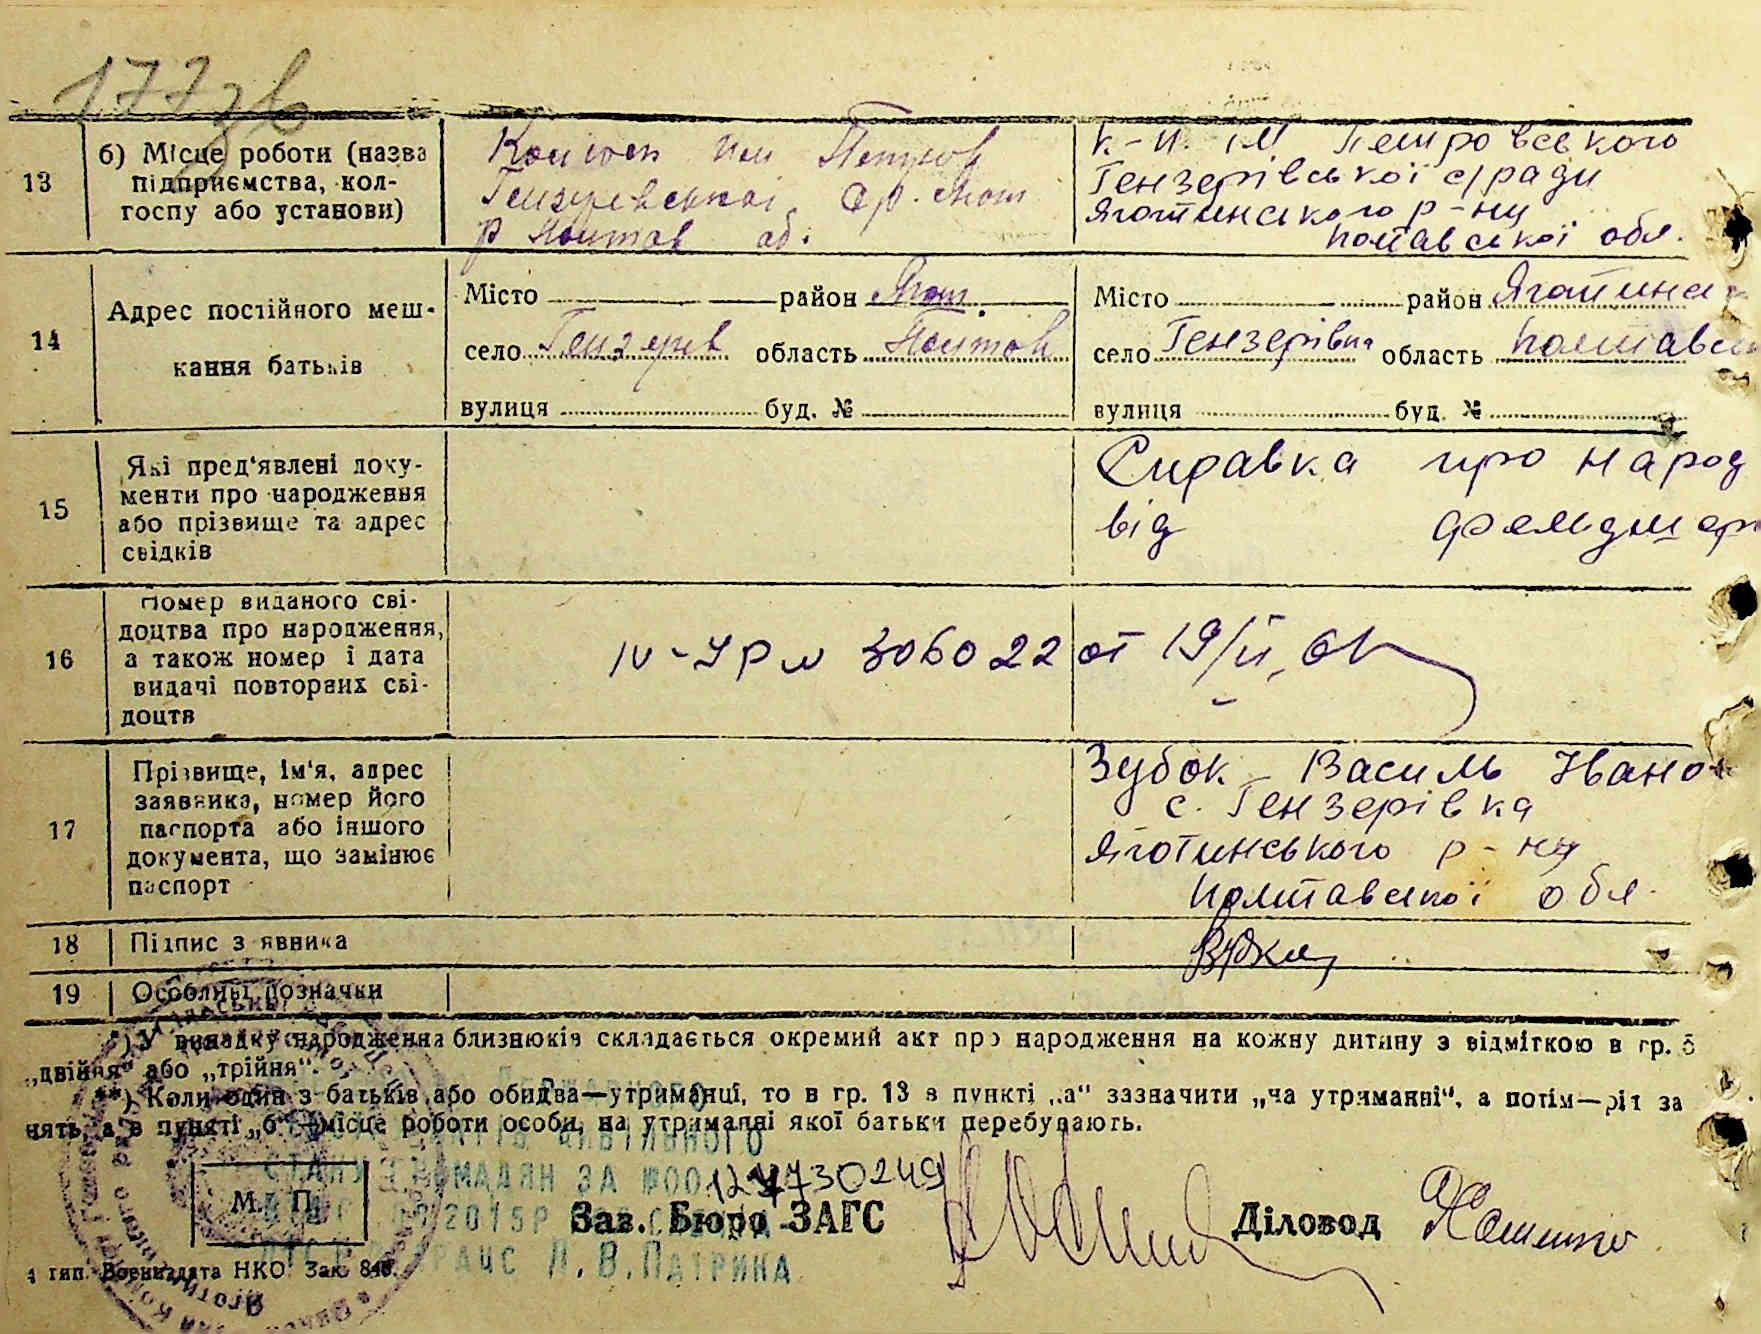 177зв
13
б) Місце роботи (назва
підприємства, кол-
госпу або установи)
Колгосп им Петров
Гензеревской ср. Ягот
р Полтав об.
к-п. ім Петровського
Гензерівської с/ради
Яготинського р-ну
Полтавської обл.
14
Адрес постійного меш-
кання батьків
Місто район Ягот.
село Гензерев область Полтав
вулиця буд. №
Місто район Яготинс
село Гензерівка область Полтавсь
вулиця буд. №
15
Які пред'явлені доку-
менти про народження
або прізвище та адрес
свідків
Справка про народ
від фельдшер
16
Номер виданого сві-
доцтва про народження,
а також номер і дата
видачі повторних сві-
доцтв
IV-УР № 306022 от 19/II, 61
17
Прізвище, ім'я, адрес
заявника, номер його
паспорта або іншого
документа, що замінює
паспорт
Зубок Василь Івано
с. Гензерівка
Яготинського р-ну
Полтавської обл.
18
Підпис заявника
19
Особливі позначки
*) У випадку народження близнюків складається окремий акт про народження на кожну дитину з відміткою в гр. 5
„двійня" або „трійня".
**) Коли один з батьків або обидва—утриманці, то в гр. 13 в пункті „а" зазначити „на утриманні", а потім—рід за
нять, а в пункті „б"—місце роботи особи, на утриманні якої батьки перебувають.
ДЕРЖАВНОГО
АКТІВ ЦИВІЛЬНОГО
СТАНУ ГРОМАДЯН ЗА №00124730249
2015Р
М. П.
Зав. Бюро ЗАГС
Діловод
ДРАЦС Л.В.ПАТРИКА
4 тип. Воениздата НКО Зак. 846.